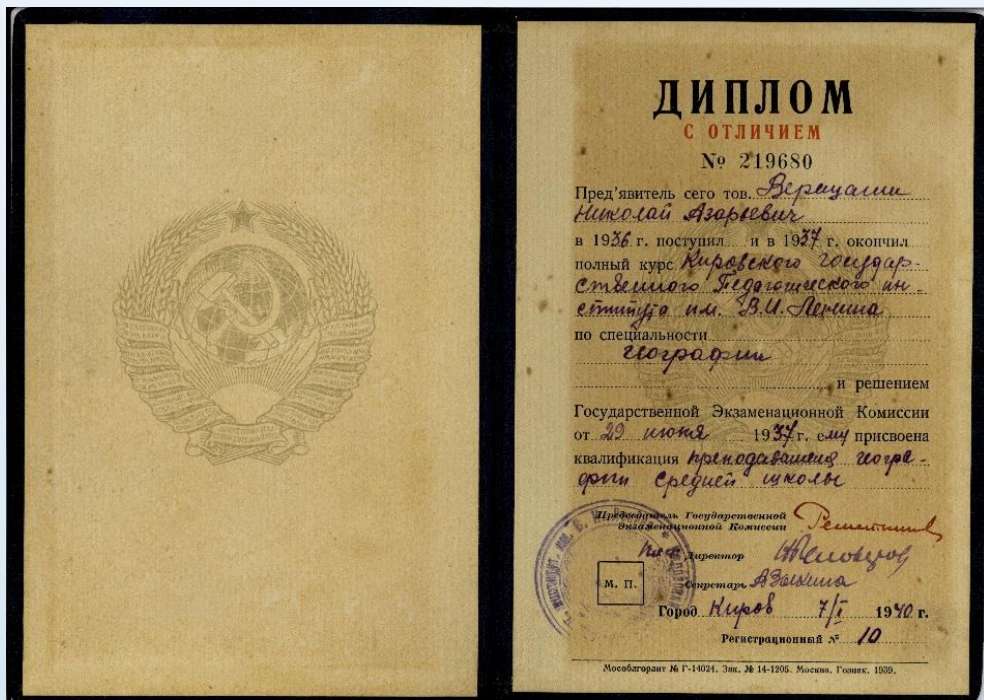 ДИПЛОМ
С ОТЛИЧИЕМ
№ 219680
Пред'явитель сего тов. Верещагин
Николай Азарьевич
в 1936 г. поступил и в 1937 г. окончил
полный курс Кировского государ-
ственного Педагогического ин-
ститута им. В.И. Ленина
по специальности
география
и решением
Государственной Экзаменационной Комиссии
от 29 июня 1937 г. ему присвоена
квалификация преподавателя геогра-
фии средней школы
Председатель Государственной
Экзаменационной Комиссии
Директор
М. П.
Секретарь
Город Киров 7/I 1940 г.
Регистрационный № 10
Мособлгорлит № Г-14024. Зак. № 14-1205. Москва. Гознак. 1939.